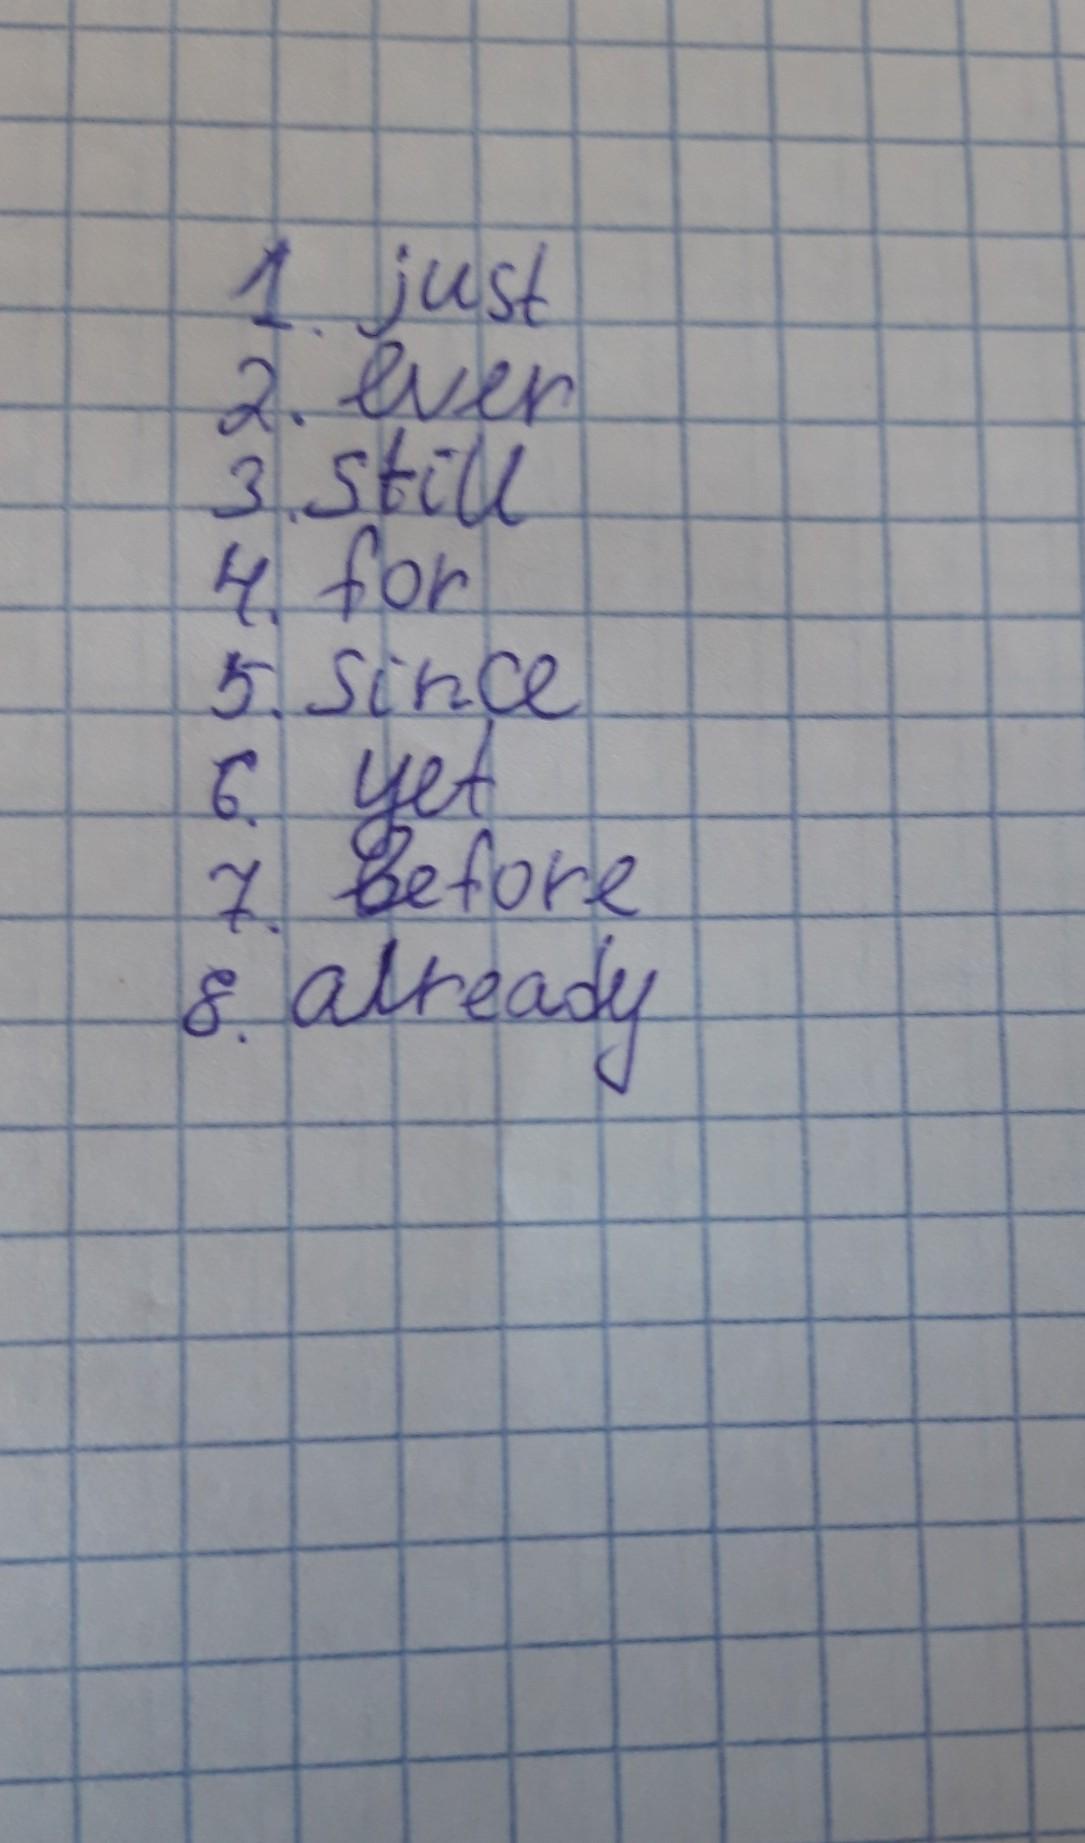 1. just
2. ever
3. still
4. for
5. since
6. yet
7. Before
8. already